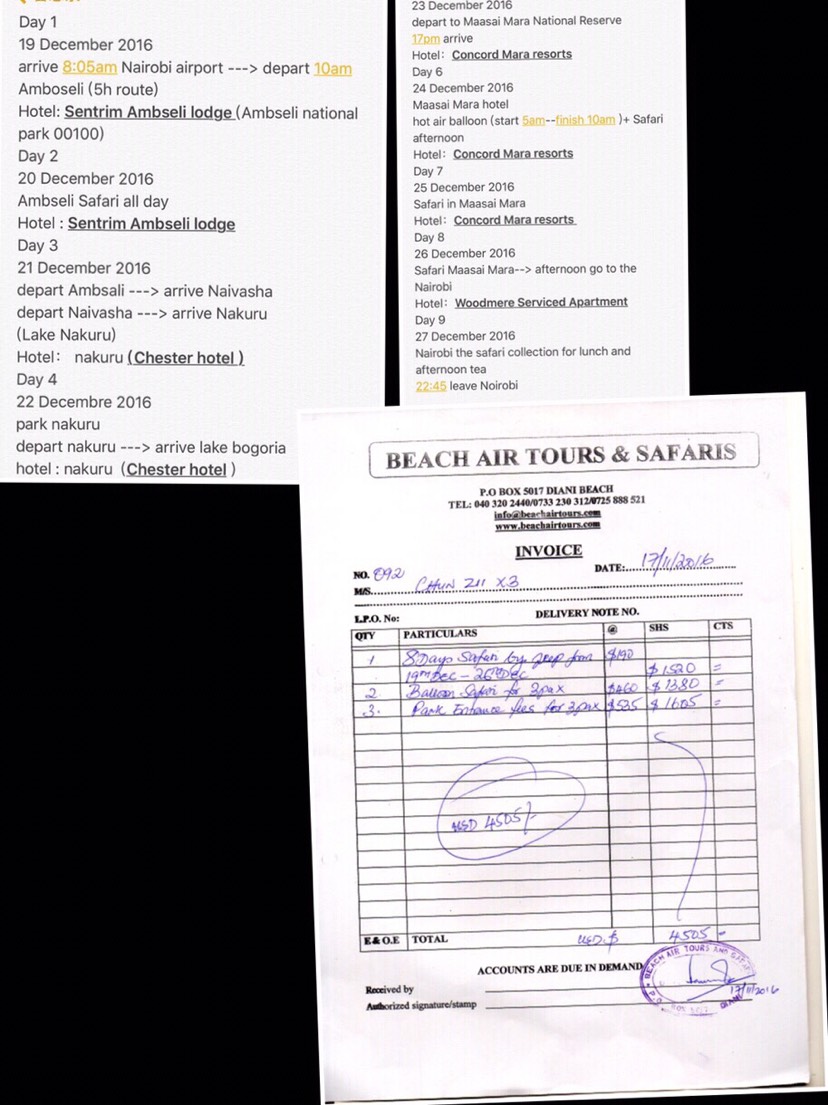 Day 1
19 December 2016
arrive 8:05am Nairobi airport ---> depart 10am
Amboseli (5h route)
Hotel: Sentrim Ambseli lodge (Ambseli national
park 00100)
Day 2
20 December 2016
Ambseli Safari all day
Hotel : Sentrim Ambseli lodge
Day 3
21 December 2016
depart Ambsali ---> arrive Naivasha
depart Naivasha ---> arrive Nakuru
(Lake Nakuru)
Hotel: nakuru (Chester hotel )
Day 4
22 Decembre 2016
park nakuru
depart nakuru ---> arrive lake bogoria
hotel : nakuru (Chester hotel )
23 December 2016
depart to Maasai Mara National Reserve
17pm arrive
Hotel: Concord Mara resorts
Day 6
24 December 2016
Maasai Mara hotel
hot air balloon (start 5am--finish 10am )+ Safari
afternoon
Hotel: Concord Mara resorts
Day 7
25 December 2016
Safari in Maasai Mara
Hotel: Concord Mara resorts
Day 8
26 December 2016
Safari Maasai Mara--> afternoon go to the
Nairobi
Hotel: Woodmere Serviced Apartment
Day 9
27 December 2016
Nairobi the safari collection for lunch and
afternoon tea
22:45 leave Noirobi
BEACH AIR TOURS & SAFARIS
P.O BOX 5017 DIANI BEACH
TEL: 040 320 2440/0733 230 312/0725 888 521
info@beachairtours.com
www.beachairtours.com
INVOICE
NO. 092 DATE: 17/11/2016
M/S. CHUN ZII X3
L.P.O. No: DELIVERY NOTE NO.
QTY PARTICULARS @ SHS CTS
1 8 Days Safari by jeep from $190
19th Dec - 26th Dec $1520 =
2 Balloon Safari for 3pax $460 $1380 =
3. Park Entrance fees for 3pax $535 $1605 =
USD 4505/-
E & O.E TOTAL USD $ 4505 -
ACCOUNTS ARE DUE IN DEMAND
Received by
Authorized signature/stamp
BEACH AIR TOURS AND SAFARI
17/11/2016